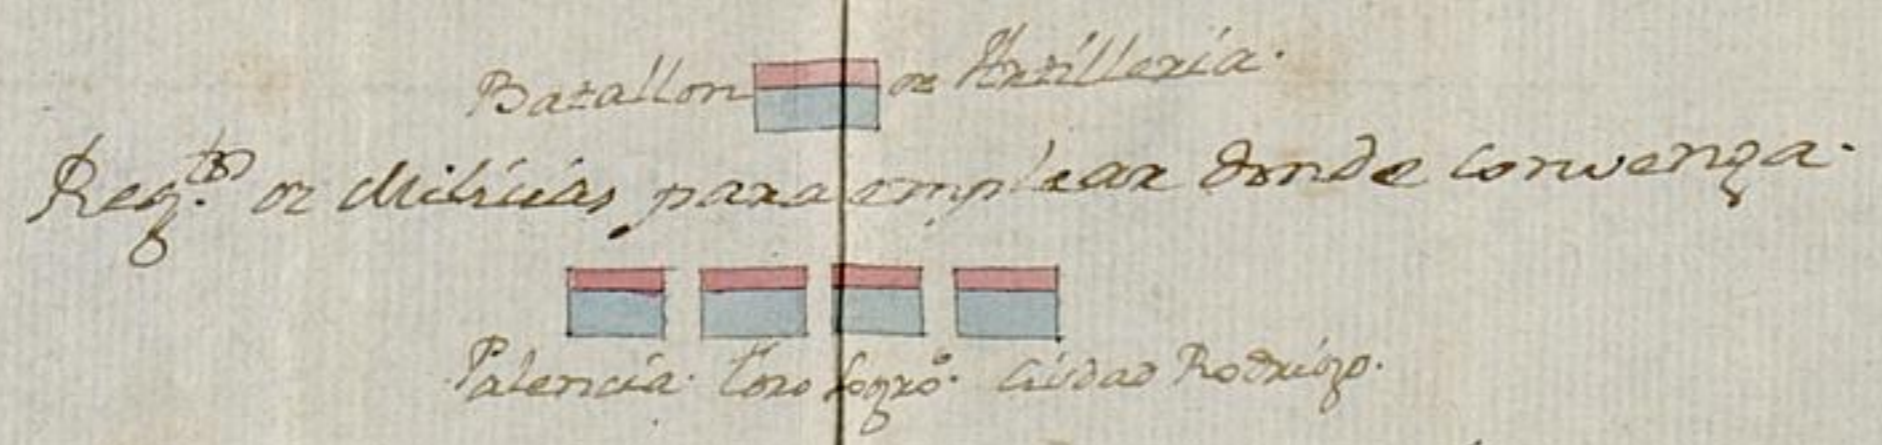 Batallon de Artilleria.
Reg.tos de Milicias, para emplear donde convenga.
Palencia. Toro Logro. Ciudad Rodrigo.